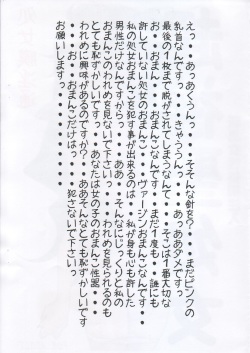 えっ・・あっあくうんっ・・・そそそんな針を？・・・まだピンクの
乳首なんですっ・・・きゃううんっ・・・あっああダメですっ
最後の１枚まで脱がされてしまうなんて・・・そこは１番大切な
お・・おま・・・おまんこなんですっ・・・まだ１度も・・誰にも
許していない処女おまんこ・・・ヴァージンおまんこなんです・・
私の処女おまんこを犯す事が出来るのは・・私が身も心も許した
男性だけなんですからっ・・・ああ・・そんなにじっくりと私の
おまんこのわれめを見ないで下さいっ・・われめを見られるのも
とても恥ずかしいですっ・・・あなたは女の子のおまんこ性器・・
われめに興味があるのですか？・・ああそんなとても恥ずかしいです
おま・・・おまんこだけはっ・・・・犯さないで下さいっ
お願いしますっ・・